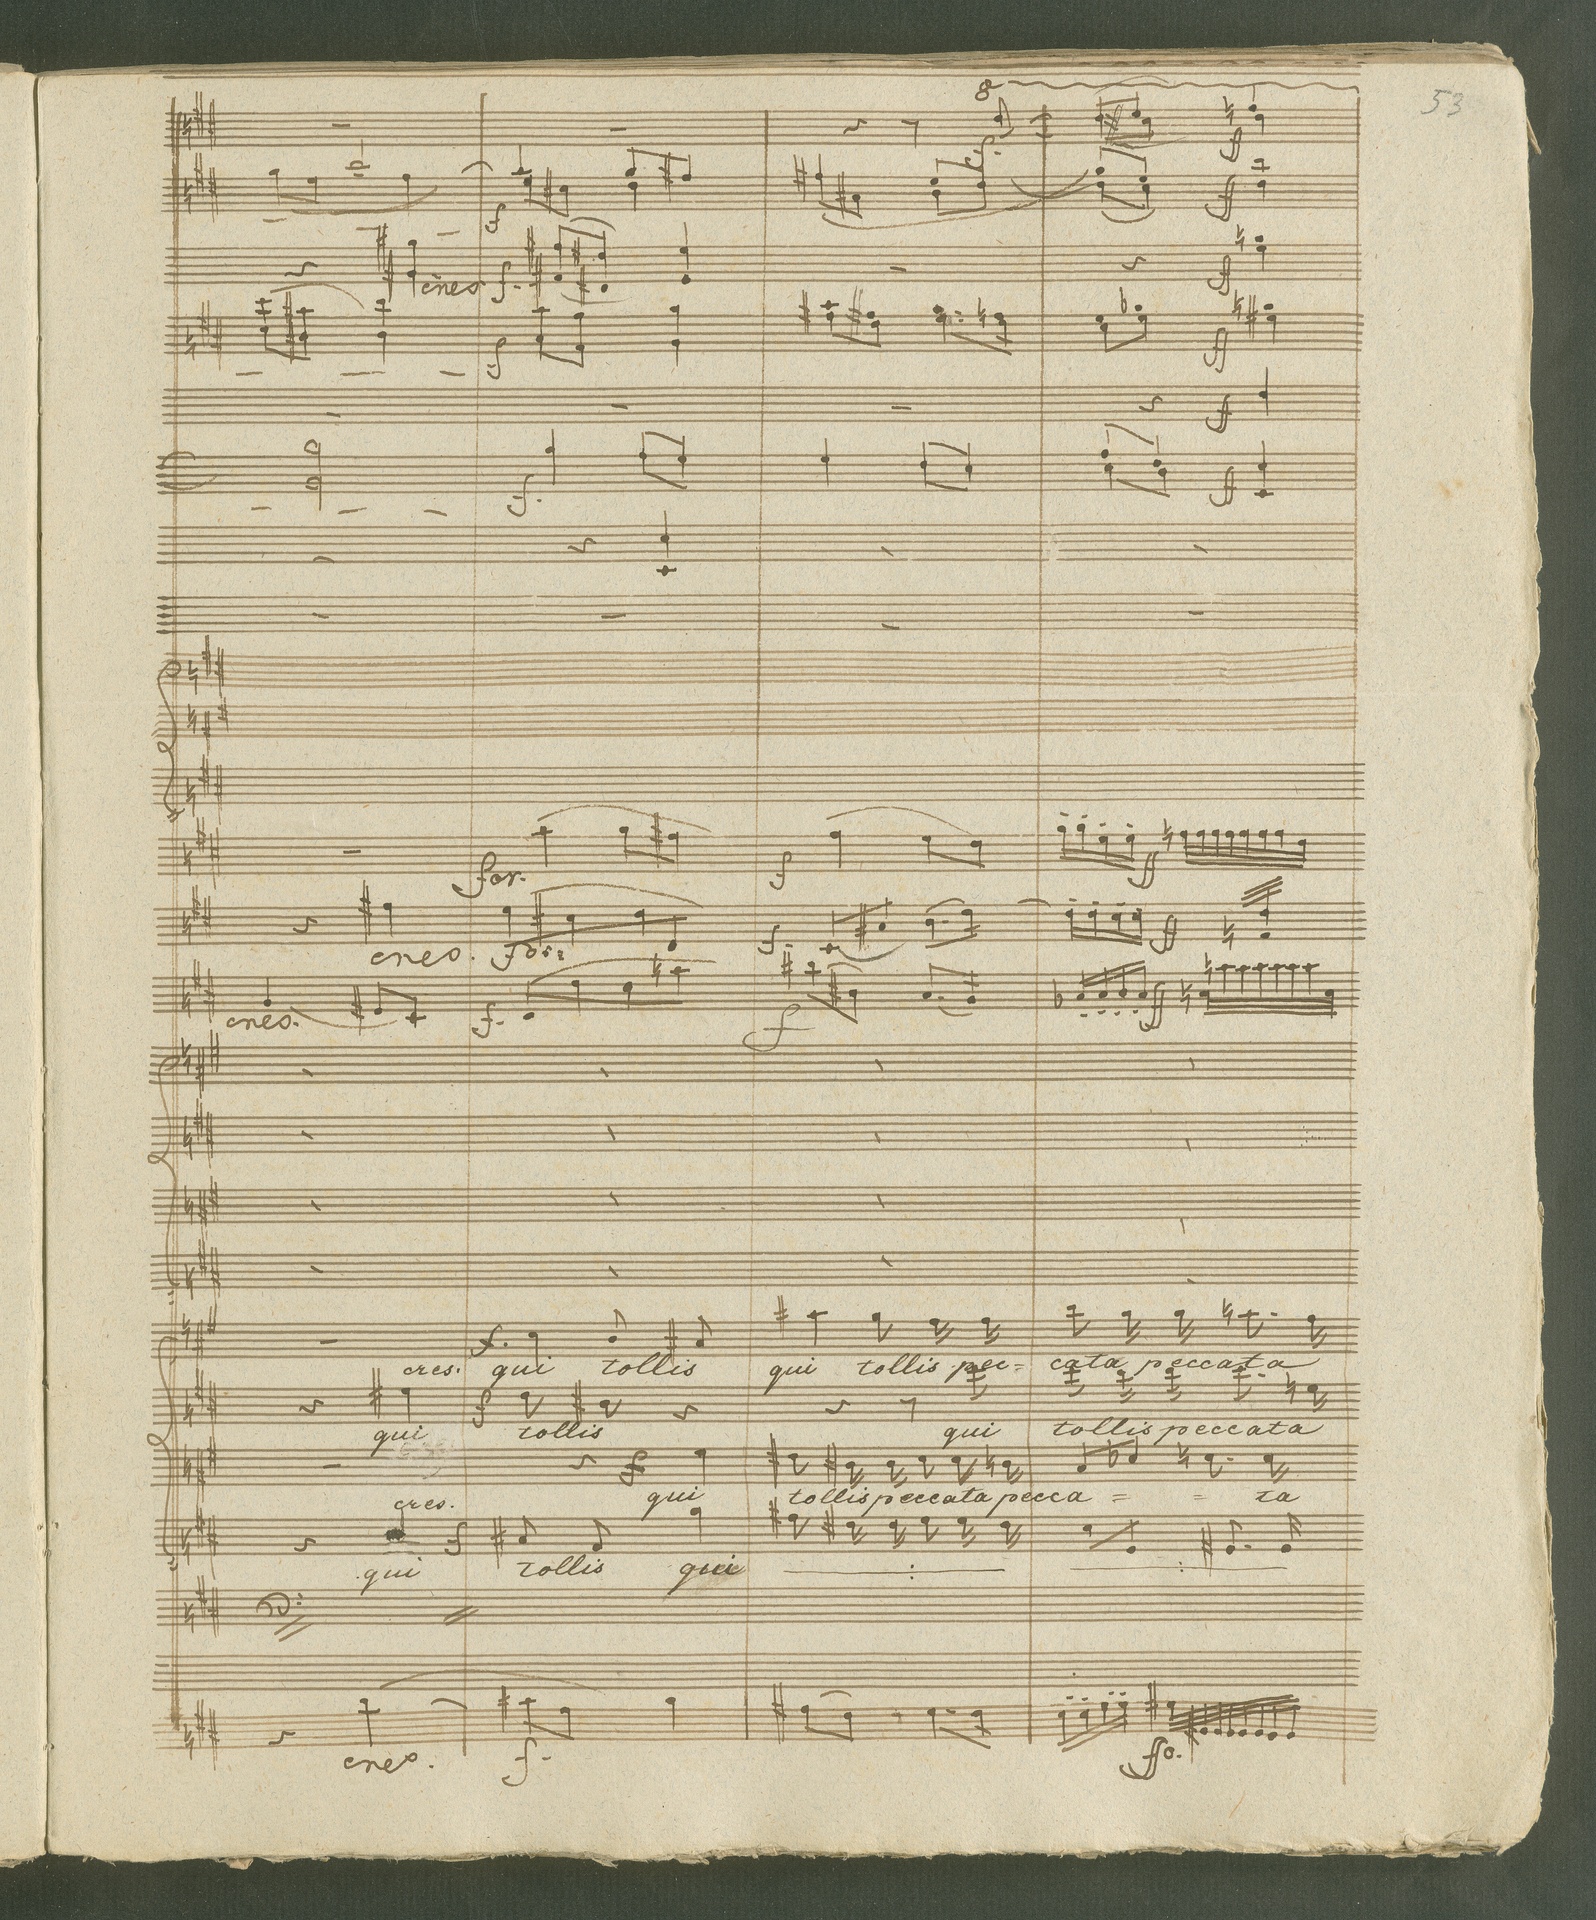 53
8
cresc. f.
f
f
f.
ff
for.
f
ff
cres. for:
f.
ff
cres. f.
f
ff
f.
cres. qui tollis qui tollis pec= cata peccata
f
qui tollis qui tollis peccata
f
cres. qui tollis peccata pecca = = ta
f
qui tollis qui
cres. f. ffo.